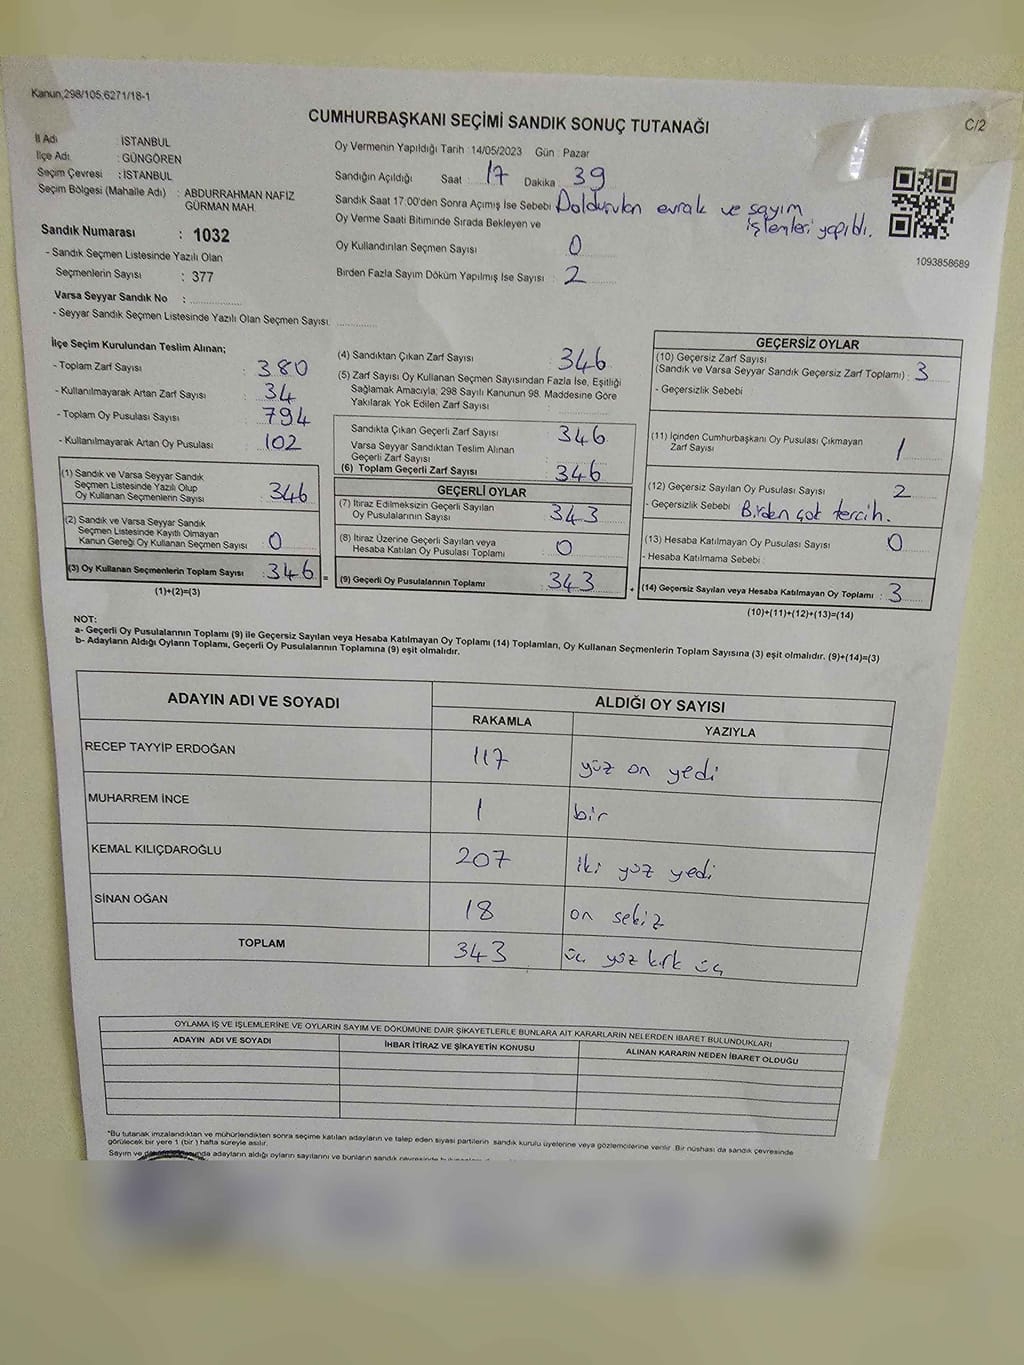 Kanun,298/105,6271/18-1
C/2
CUMHURBAŞKANI SEÇİMİ SANDIK SONUÇ TUTANAĞI
İl Adı : İSTANBUL
İlçe Adı : GÜNGÖREN
Seçim Çevresi : İSTANBUL
Seçim Bölgesi (Mahalle Adı) : ABDURRAHMAN NAFİZ
GÜRMAN MAH.
Sandık Numarası : 1032
- Sandık Seçmen Listesinde Yazılı Olan
Seçmenlerin Sayısı : 377
Varsa Seyyar Sandık No :
- Seyyar Sandık Seçmen Listesinde Yazılı Olan Seçmen Sayısı:
Oy Vermenin Yapıldığı Tarih :14/05/2023 Gün : Pazar
Sandığın Açıldığı Saat : 17 Dakika : 39
Sandık Saat 17:00'den Sonra Açımış İse Sebebi : Doldurulan evrak ve sayım
işlemleri yapıldı.
Oy Verme Saati Bitiminde Sırada Bekleyen ve
Oy Kullandırılan Seçmen Sayısı : 0
Birden Fazla Sayım Döküm Yapılmış İse Sayısı : 2
1093858689
İlçe Seçim Kurulundan Teslim Alınan;
- Toplam Zarf Sayısı : 380
- Kullanılmayarak Artan Zarf Sayısı : 34
- Toplam Oy Pusulası Sayısı : 794
- Kullanılmayarak Artan Oy Pusulası : 102
(1) Sandık ve Varsa Seyyar Sandık
Seçmen Listesinde Yazılı Olup
Oy Kullanan Seçmenlerin Sayısı : 346
(2) Sandık ve Varsa Seyyar Sandık
Seçmen Listesinde Kayıtlı Olmayan
Kanun Gereği Oy Kullanan Seçmen Sayısı : 0
(3) Oy Kullanan Seçmenlerin Toplam Sayısı : 346 =
(1)+(2)=(3)
(4) Sandıktan Çıkan Zarf Sayısı : 346
(5) Zarf Sayısı Oy Kullanan Seçmen Sayısından Fazla İse, Eşitliği
Sağlamak Amacıyla; 298 Sayılı Kanunun 98. Maddesine Göre
Yakılarak Yok Edilen Zarf Sayısı :
Sandıkta Çıkan Geçerli Zarf Sayısı : 346
Varsa Seyyar Sandıktan Teslim Alınan
Geçerli Zarf Sayısı :
(6) Toplam Geçerli Zarf Sayısı : 346
GEÇERLİ OYLAR
(7) İtiraz Edilmeksizin Geçerli Sayılan
Oy Pusulalarının Sayısı : 343
(8) İtiraz Üzerine Geçerli Sayılan veya
Hesaba Katılan Oy Pusulası Toplamı : 0
(9) Geçerli Oy Pusulalarının Toplamı : 343 +
GEÇERSİZ OYLAR
(10) Geçersiz Zarf Sayısı
(Sandık ve Varsa Seyyar Sandık Geçersiz Zarf Toplamı) : 3
- Geçersizlik Sebebi :
(11) İçinden Cumhurbaşkanı Oy Pusulası Çıkmayan
Zarf Sayısı : 1
(12) Geçersiz Sayılan Oy Pusulası Sayısı : 2
- Geçersizlik Sebebi : Birden çok tercih.
(13) Hesaba Katılmayan Oy Pusulası Sayısı : 0
- Hesaba Katılmama Sebebi :
(14) Geçersiz Sayılan veya Hesaba Katılmayan Oy Toplamı : 3
(10)+(11)+(12)+(13)=(14)
NOT:
a- Geçerli Oy Pusulalarının Toplamı (9) ile Geçersiz Sayılan veya Hesaba Katılmayan Oy Toplamı (14) Toplamları, Oy Kullanan Seçmenlerin Toplam Sayısına (3) eşit olmalıdır. (9)+(14)=(3)
b- Adayların Aldığı Oyların Toplamı, Geçerli Oy Pusulalarının Toplamına (9) eşit olmalıdır.
ADAYIN ADI VE SOYADI
ALDIĞI OY SAYISI
RAKAMLA
YAZIYLA
RECEP TAYYİP ERDOĞAN 117 yüz on yedi
MUHARREM İNCE 1 bir
KEMAL KILIÇDAROĞLU 207 iki yüz yedi
SİNAN OĞAN 18 on sekiz
TOPLAM 343 üç yüz kırk üç
OYLAMA İŞ VE İŞLEMLERİNE VE OYLARIN SAYIM VE DÖKÜMÜNE DAİR ŞİKAYETLERLE BUNLARA AİT KARARLARIN NELERDEN İBARET BULUNDUKLARI
ADAYIN ADI VE SOYADI
İHBAR İTİRAZ VE ŞİKAYETİN KONUSU
ALINAN KARARIN NEDEN İBARET OLDUĞU
*Bu tutanak imzalandıktan ve mühürlendikten sonra seçime katılan adayların ve talep eden siyasi partilerin sandık kurulu üyelerine veya gözlemcilerine verilir. Bir nüshası da sandık çevresinde
görülecek bir yere 1 (bir) hafta süreyle asılır.